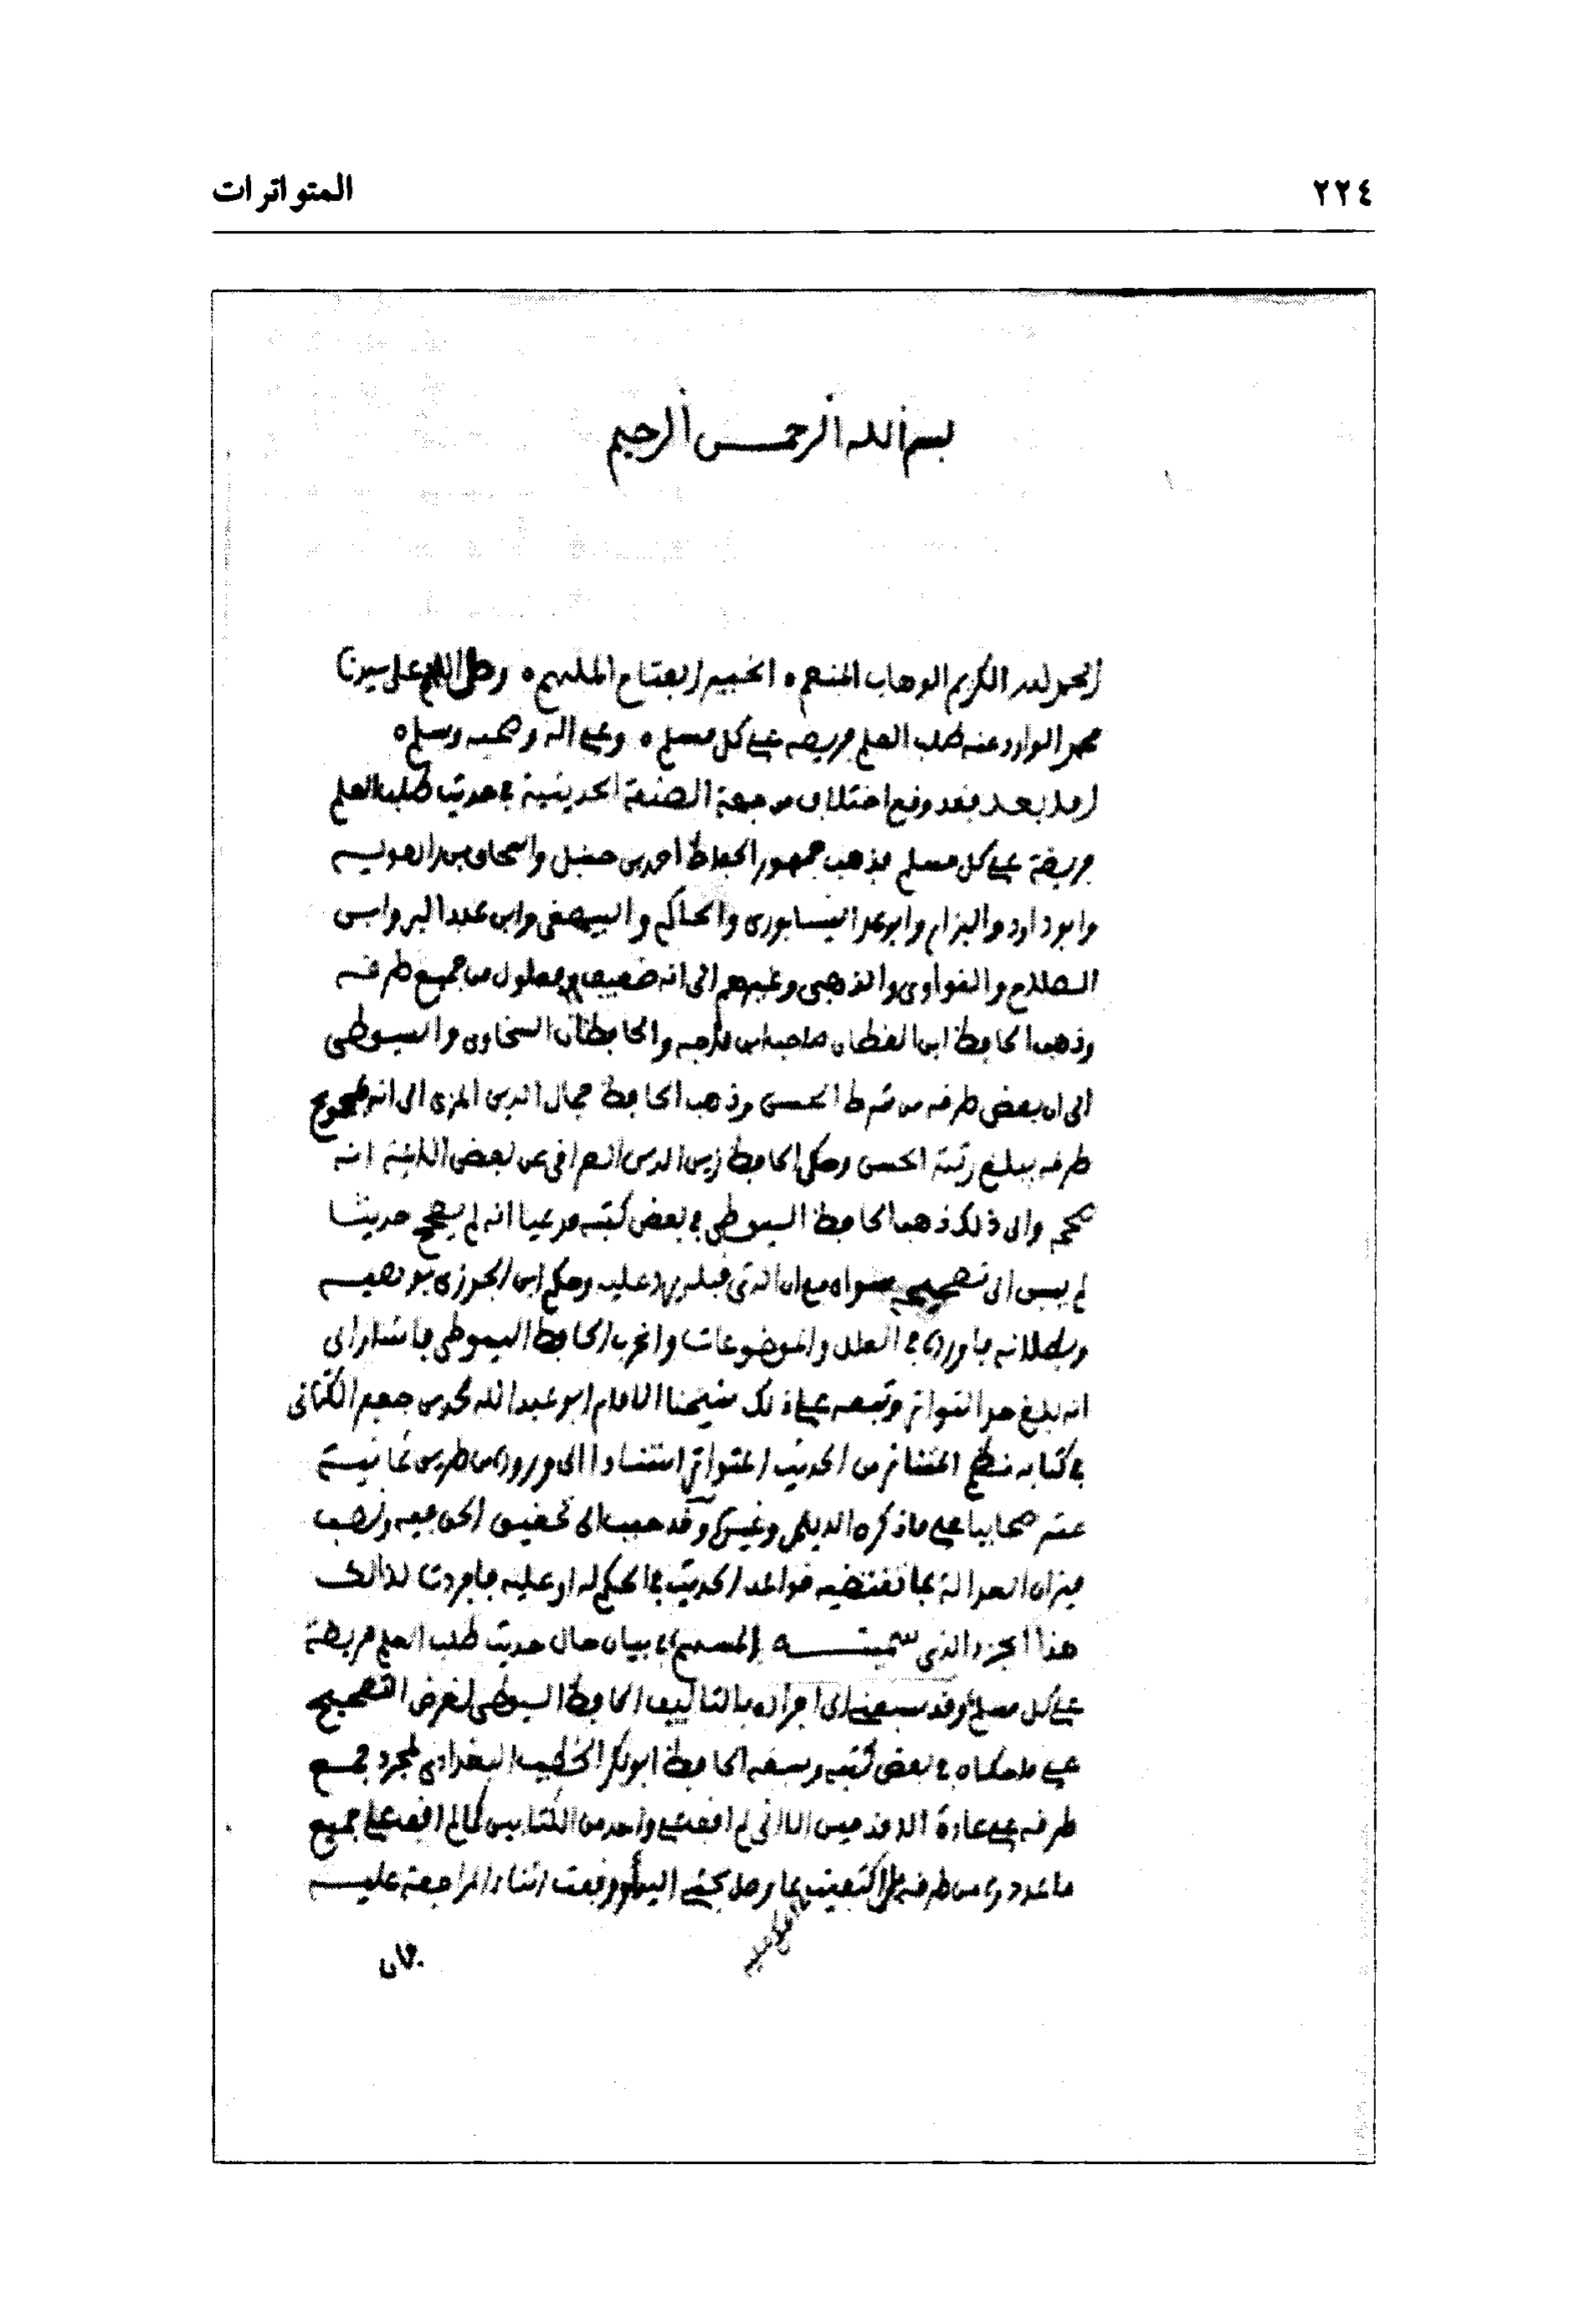 ٢٢٤ المتواترات
بسم الله الرحمن الرحيم
الحمد لله الكريم الوهاب المنعم ٥ الخبير الفتاح الملهم ٥ وصلى الله على سيدنا
محمد الوارد عنه طلب العلم فريضة على كل مسلم ٥ وعلى اله وصحبه وسلم ٥
اما بعد فقد وقع اختلاف من جهة الصنعة الحديثية في حديث طلب العلم
فريضة على كل مسلم فذهب جمهور الحفاظ احمد بن حنبل واسحاق بن راهويه
وابو داود والبزار وابو علي النيسابوري والحاكم والبيهقي وابن عبد البر وابن
الصلاح والنواوي والذهبي وغيرهم الى انه ضعيف معلول من جميع طرقه
وذهب الحافظ ابن القطان صاحب ابن ماجه والحافظان السخاوي والسيوطي
الى ان بعض طرقه من شرط الحسن وذهب الحافظ جمال الدين المزي الى انه بمجموع
طرقه يبلغ رتبة الحسن وحكى الحافظ زين الدين العراقي عن بعض الائمة انه
صححه والى ذلك ذهب الحافظ السيوطي في بعض كتبه مدعيا انه لم يصحح حديثا
لم يسبق الى تصحيحه سواه مع ان الذي قبله يرد عليه وحكم ابن الجوزي بوهيه
وبطلانه فاورده في العلل والموضوعات واغرب الحافظ السيوطي فاشار الى
انه بلغ حد التواتر وتبعه على ذلك شيخنا الامام ابو عبد الله محمد بن جعفر الكتاني
في كتابه نظم المتناثر من الحديث المتواتر استنادا الى وروده من طريق ثمانية
عشر صحابيا على ما ذكره الديلمي وغيره وقد حبب الى تحقيق الحق فيه ونصب
ميزان العدالة بما تقتضيه قواعد الحديث بالحكم له او عليه فافردت لذالك
هذا الجزء الذي سميته المسهم في بيان حال حديث طلب العلم فريضة
على كل مسلم وقد سبقني الى افراده بالتاليف الحافظ السيوطي لغرض التصحيح
على ما حكاه في بعض كتبه وسبقه الحافظ ابو بكر الخطيب البغدادي لمجرد جمع
طرقه على عادة الاقدمين الا اني لم اقف على واحد من الكتابين كما لم اقف على جميع
ما عدده من طرقه بل اكتفيت بما وصل بحثي اليه ووقفت اثناء المراجعة عليه
فان